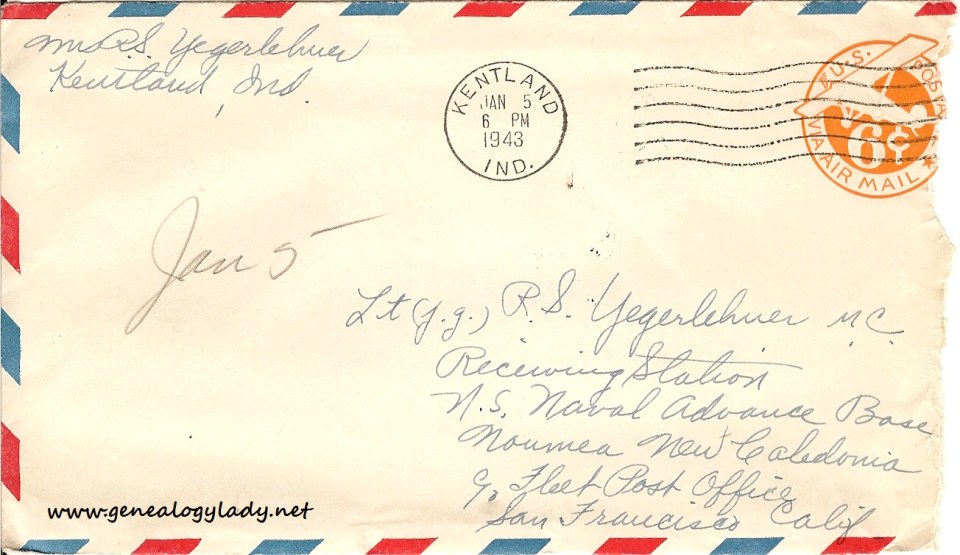 Mrs R.S. Yegerlehner
Kentland, Ind.
KENTLAND
JAN 5
6 PM
1943
IND.
U.S. POSTA
6¢
VIA AIR MAIL
Jan 5
Lt (j.g.) R.S. Yegerlehner M.C.
Receiving Station
U.S. Naval Advance Base
Noumea New Caledonia
c/o Fleet Post Office
San Francisco Calif
www.genealogylady.net